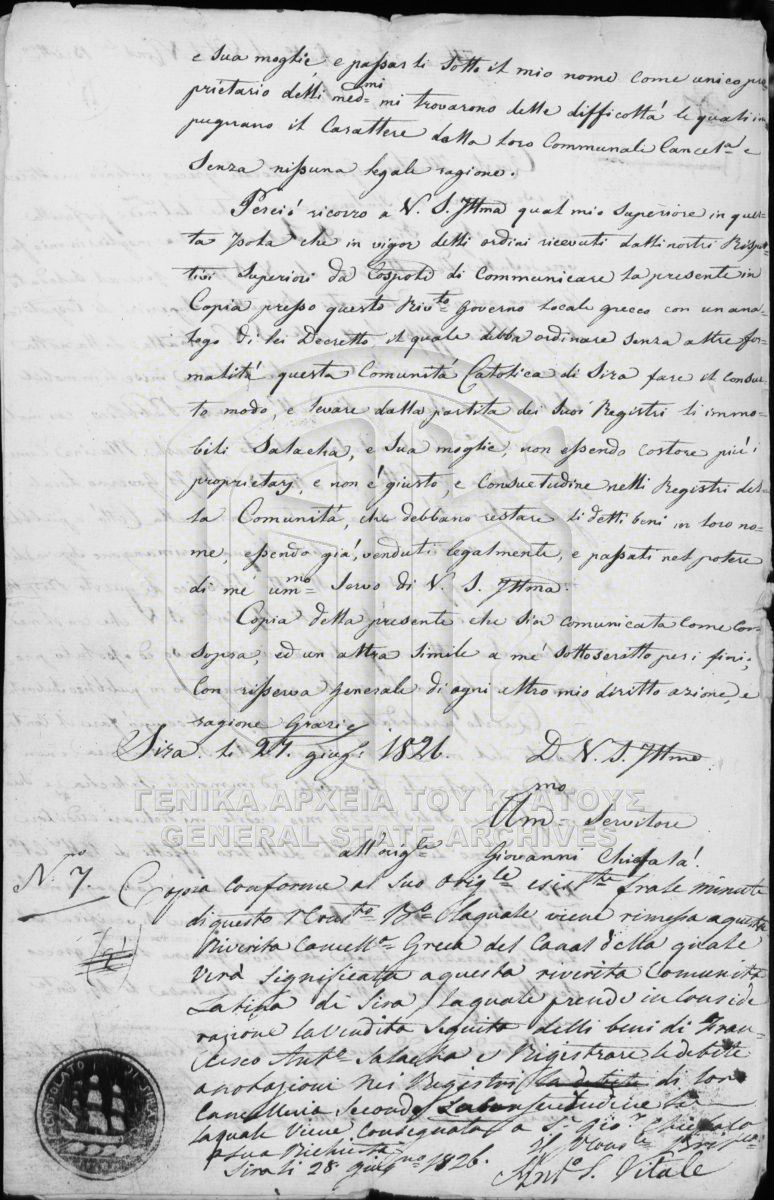 e sua moglie, e passarli sotto il mio nome come unico pro
prietario delli med=mi mi trovarono delle difficoltá le quali im
pugnano il Carattere della loro Communale Cancel.a e
senza nissuna legale ragione.
Perció ricorro a V. S. Illma qual mio Superiore in ques-
ta Isola che in vigor delli ordini ricevuti dalli nostri Rispet-
tivi Superiori da Cospoli di Communicare la presente in
Copia presso questo Riv.to Governo locale greco con un ana-
logo di lei Decretto il quale debba ordinare senza altre for-
malitá questa Comunitá Catolica di Sira fare il consue-
to modo, e levare dalla partita dei suoi Registri li immo-
bili Salacha, e sua moglie, non essendo costore piú i
proprietarj, e non é giusto, e Consuetudine nelli Registri del-
la Comunitá, che debbano restare li detti beni in loro no-
me, essendo giá venduti legalmente, e passati nel potere
di mé um=mo Servo di V. S. Illma.
Copia della presente che sia comunicata come con
sopra, ed un altra simile a mé sottoscritto per i fini;
con risserva generale di ogni altro mio diritto azione, e
ragione Grazie
Sira. li 27. giug. 1826.
D. V. S. Illma
Um=mo Servitore
all'orig.le Giovanni Chiafalá.
N.o 7. Copia conforme al suo orig.le esist.te frale minute
di questo V. Cons.to la quale viene rimessa a questa
Riverita Cancell.a Greca del Canal della quale
verá significata a questa reverita Comunita
Latina di Sira la quale prende in Conside
razione la vendita seguita delli beni di Fran-
cesco Ant.o Salacha e Registrare le debite
anotazioni nei Registri di lor
Cancelleria secondo la consuetudine la
quale viene consegnata a S.r Gio. Chiafalo
a sua Richiesta
Sira li 28. giug.no 1826.
Il Vicons.le
Ant.o S. Vitale
CONSOLATO DI SIRA
ΓΕΝΙΚΑ ΑΡΧΕΙΑ ΤΟΥ ΚΡΑΤΟΥΣ
GENERAL STATE ARCHIVES